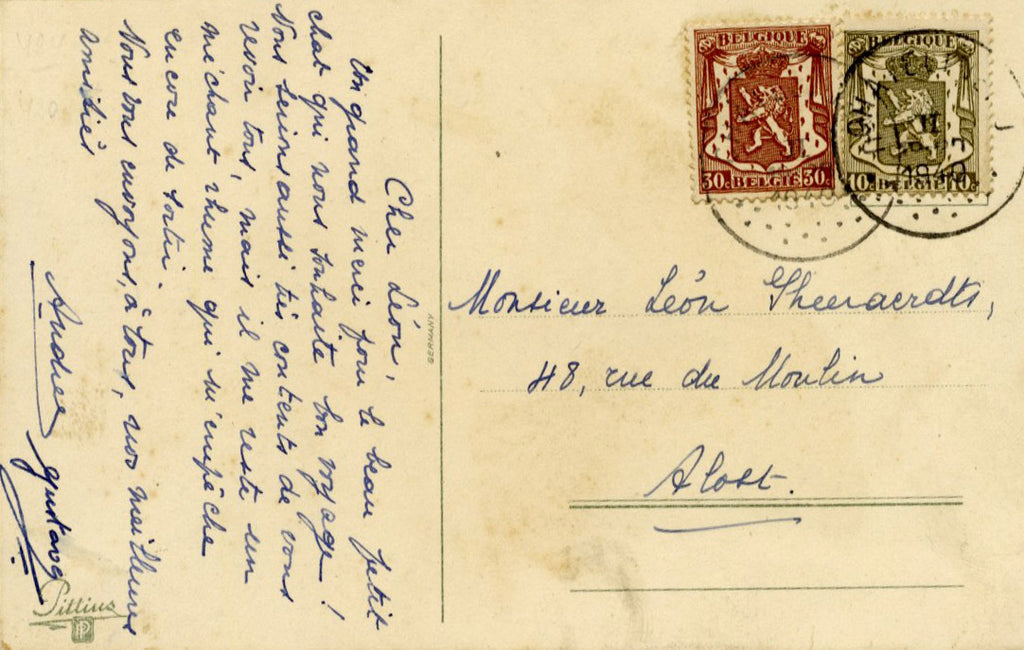 Cher Léon,
Un grand merci pour le beau petit
chat qui nous souhaite bon voyage!
Nous serions aussi très contents de vous
revoir tous, mais il me reste un
méchant rhume qui m'empêche
encore de sortir.
Nous vous envoyons, à tous, nos meilleures
amitiés
Andrée
Gustave
Pittius
GERMANY
BELGIQUE
30c BELGIË 30c
BELGIQUE
10c BELGIË 10c
Monsieur Léon Gheeraerdts,
48, rue du Moulin
Alost.